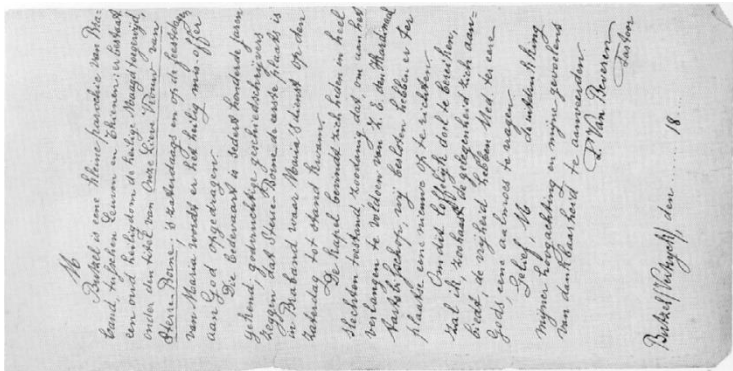 M
Butsel is eene kleine parochie van Bra-
band, tusschen Leuven en Thienen: er bestaat
een oud heiligdom de heilige Maagd toegewijd,
onder den titel van Onze Lieve Vrouw van
Sterre-Borne; 's zaterdags en op de feestdagen
van Maria wordt er het heilig mis-offer
aan God opgedragen.
Die bedevaart is sedert honderde jaren
gekend; godvruchtige geschiedschrijvers
zeggen dat Sterre-Borne de eerste plaats is
in Braband waar Maria's dienst op den
zaterdag tot stand kwam.
De kapel bevindt zich heden in heel
slechten toestand zoodanig dat, om aan het
verlangen te voldoen van Z. E. den Kardinaal
Aartsbisschop, wij besloten hebben er ter
plaatse eene nieuwe op te richten.
Om dit loffelijk doel te bereiken,
zal ik, zoohaast de gelegenheid zich aan-
biedt, de vrijheid hebben Ued. ter eere
Gods, eene aalmoes te vragen.
Gelief, M de uitdrukking
mijner hoogachting en mijne gevoelens
van dankbaarheid te aanvaarden.
P. Van Reveren
Pastoor
Butsel (Vertryck), den ........ 18 ....